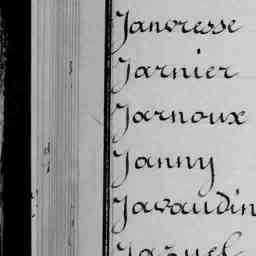 Janvresse
Jarnier
Jarnoux
Janny
Javaudin